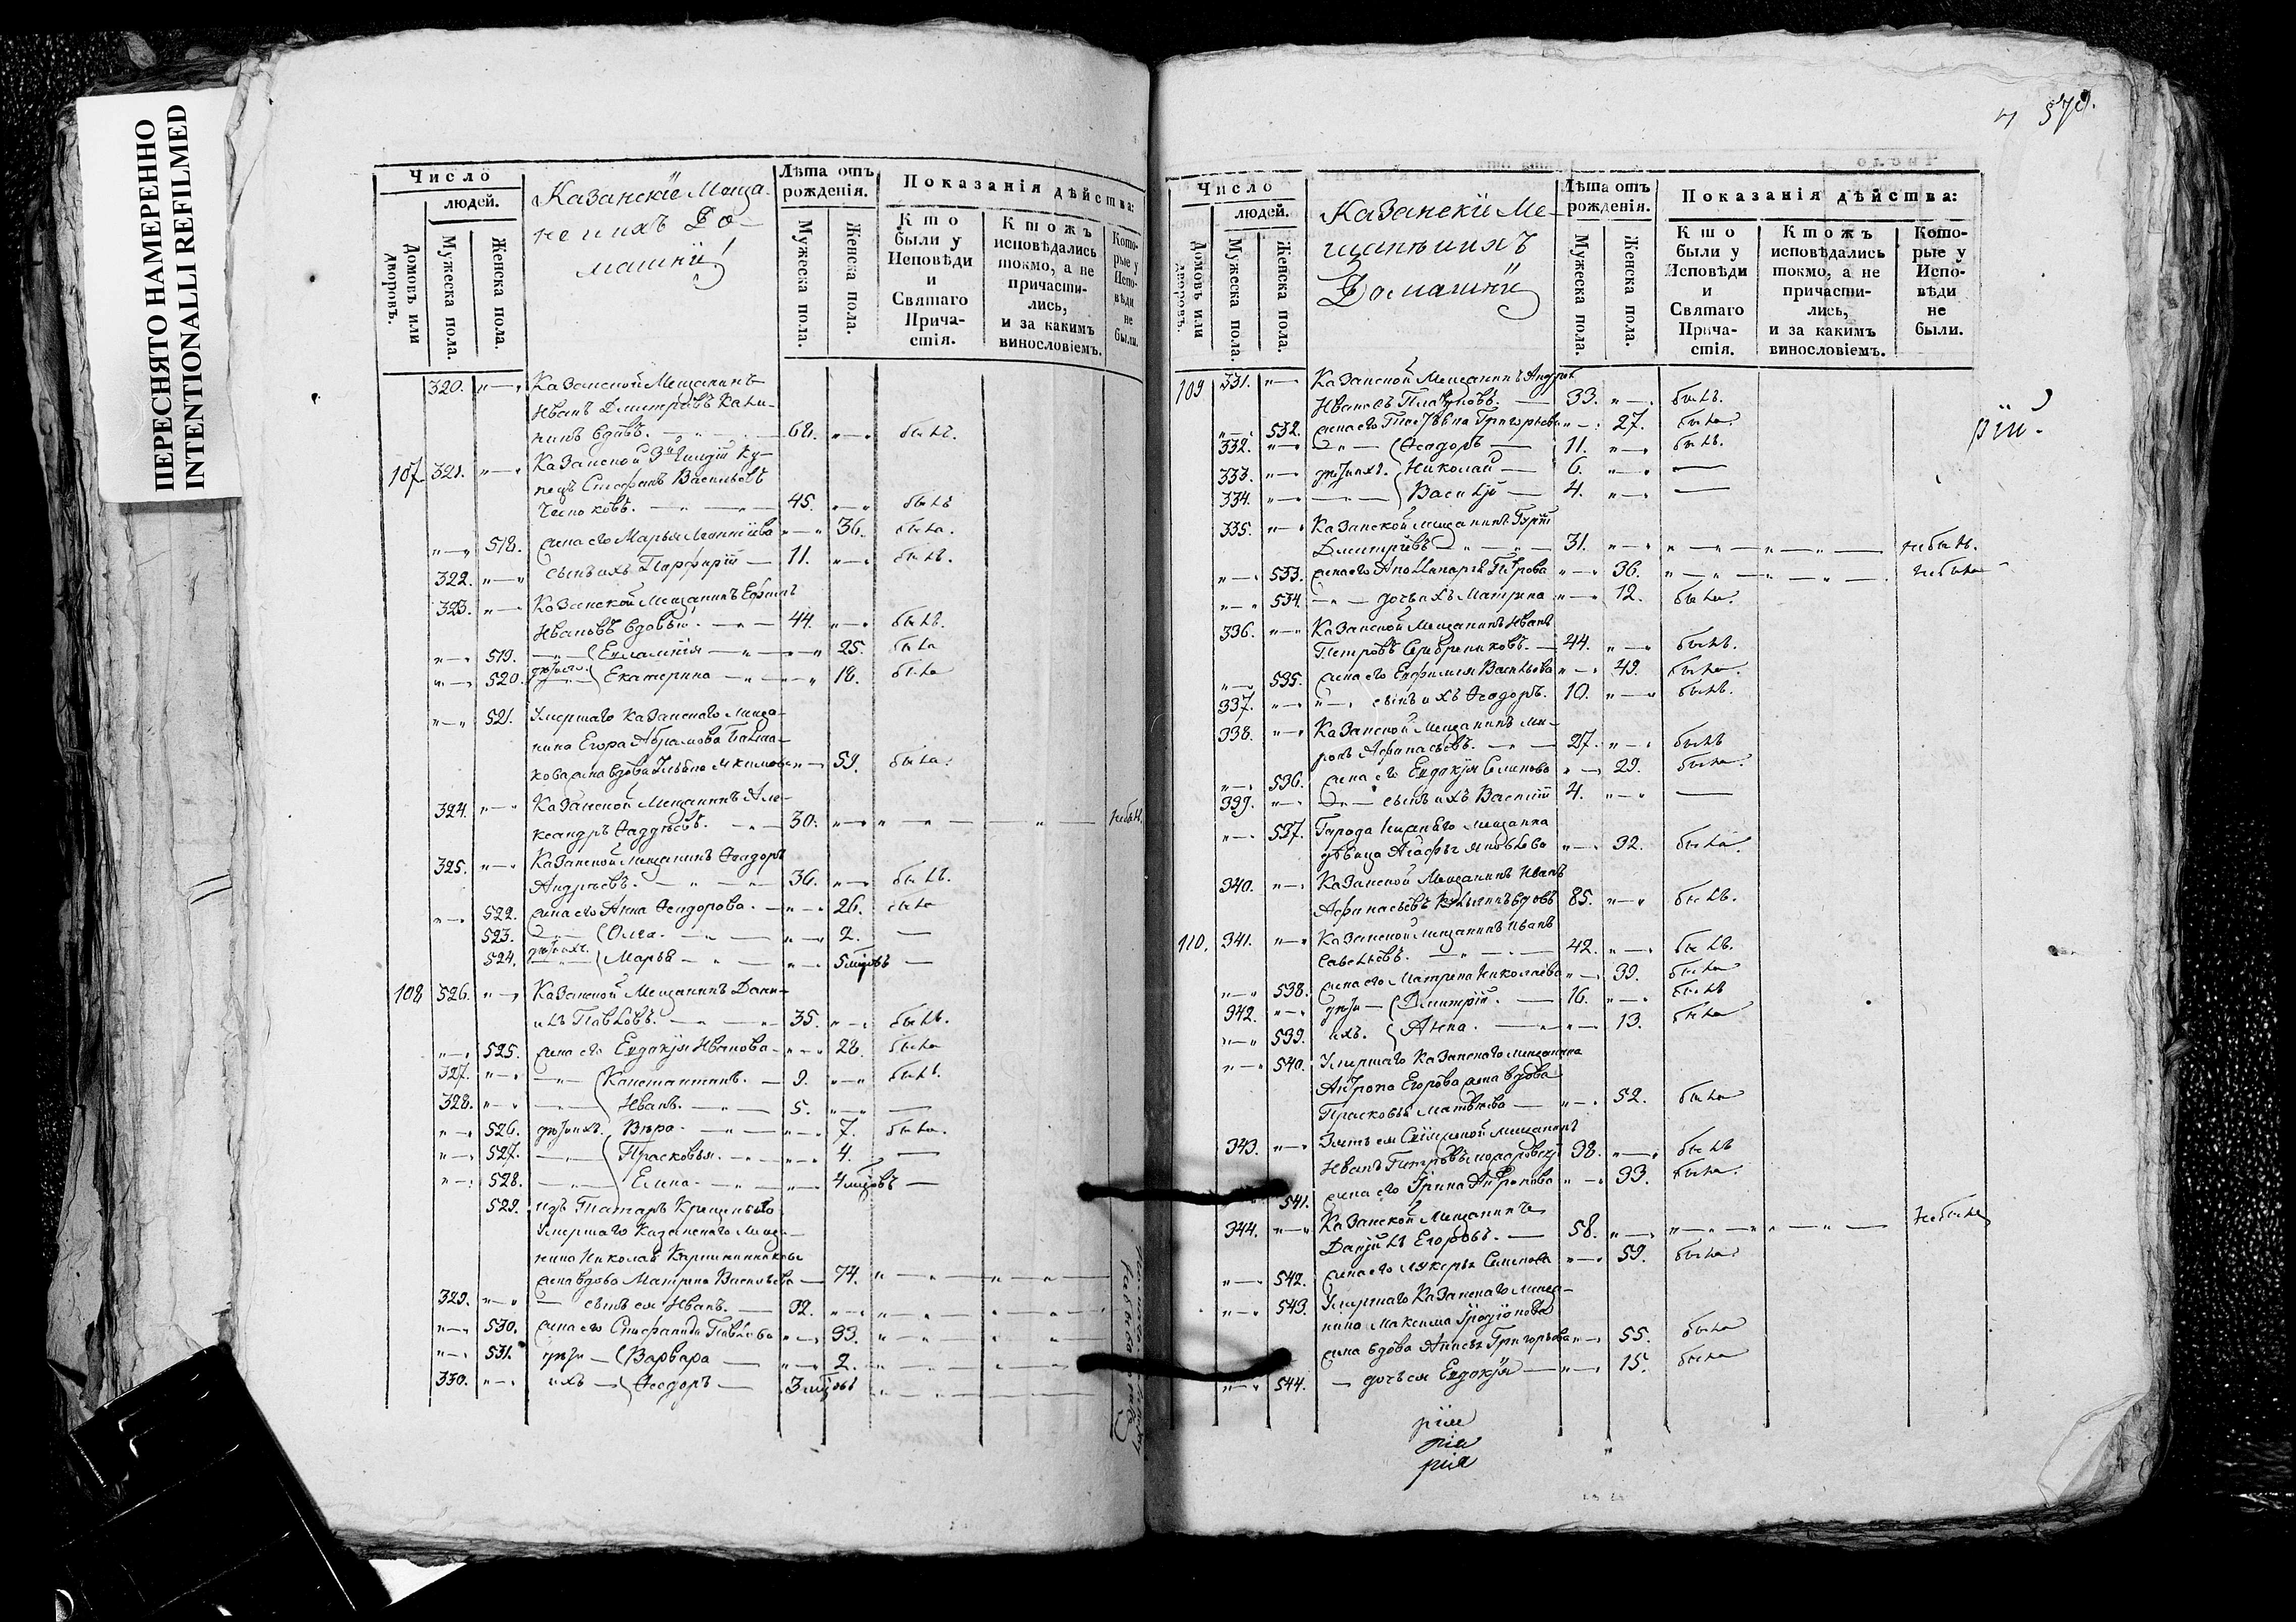 ПЕРЕСНЯТО НАМЕРЕННО
INTENTIONALLI REFILMED
Число
людей.
Домовъ или дворовъ.
Мужеска пола.
Женска пола.
Казанскіе Меща-
не и ихъ До-
машніи
Лѣта отъ рожденія.
Мужеска пола.
Женска пола.
Показанія дѣйства:
Кто были у Исповѣди и Святаго Причастія.
Кто жъ исповѣдались токмо, а не причастились, и за какимъ винословіемъ.
Которые у Исповѣди не были.
320. Казанской Мещанинъ
Иванъ Дмитріевъ Кали-
нинъ вдовъ. 68. былъ.
107 321. Казанской 3й Гильдіи Ку-
пецъ Стефанъ Васильевъ
45. былъ
518. жена его Марья 36. была.
322. сынъ ихъ Порфирій 11. былъ.
323. Казанской Мещанинъ Ефимъ
Ивановъ вдовъ. 44. былъ.
519. Евлампія 25. была
520. Екатерина 18. была
521. Умершаго Казанскаго Меща-
нина Егора Абрамова
59. была.
324. Казанской Мещанинъ Але-
ксандръ Фаддѣевъ. 30. небылъ.
325. Казанской Мещанинъ Феодоръ
Андреевъ. 36. былъ.
522. жена его Анна Феодорова. 26. была
523. Олга. 2.
524. дѣти ихъ. Марья 5 мцовъ
108 526. Казанской Мещанинъ Дани-
илъ Павловъ. 35. былъ.
525. жена его Евдокія Иванова 28. была
327. Константинъ. 9. былъ.
328. Иванъ. 5.
526. дѣти ихъ. Вѣра. 7. была.
527. Прасковья. 4.
528. Елена. 4 мцовъ
529. изъ Татаръ Крещеныхъ
Умершаго Казанскаго Меща-
нина Николая
жена вдова Матрена Васильева 74.
329. сынъ ея Иванъ. 32.
530. жена его Стефанида Павлова 33.
531. дѣти Варвара 2.
330. ихъ Феодоръ 3 мцовъ
570.
Число
людей.
Домовъ или дворовъ.
Мужеска пола.
Женска пола.
Казанскіи Ме-
щане и ихъ
Домашніи
Лѣта отъ рожденія.
Мужеска пола.
Женска пола.
Показанія дѣйства:
Кто были у Исповѣди и Святаго Причастія.
Кто жъ исповѣдались токмо, а не причастились, и за какимъ винословіемъ.
Которые у Исповѣди не были.
109 331. Казанской Мещанинъ Андрей
Ивановъ Платоновъ. 33. былъ.
532. жена его Григорьева 27. была.
332. Феодоръ 11. былъ.
333. дѣти ихъ. Николай 6.
334. Василій 4.
335. Казанской Мещанинъ Гурій
Дмитріевъ 31. небылъ.
533. жена его Петрова 36. небыла
534. дочь ихъ Матрена 12. была.
336. Казанской Мещанинъ Иванъ
Петровъ Серебрениковъ. 44. былъ.
535. жена его Евфимія Васильева 49. была.
337. сынъ ихъ Феодоръ. 10. былъ.
338. Казанской Мещанинъ Ми-
ронъ Афанасьевъ. 27. былъ
536. жена его Евдокія Семенова 29. была.
339. сынъ ихъ Василій 4.
537. Города мещанка
дѣвица Агафья Яковлева 32. была.
340. Казанской Мещанинъ Иванъ
Афанасьевъ вдовъ 85. былъ.
110. 341. Казанской Мещанинъ Иванъ
Савельевъ. 42. былъ.
538. жена его Матрена Николаева 39. была
342. дѣти Дмитрій. 16. былъ
539. ихъ. Анна. 13. была
540. Умершаго Казанскаго мещанина
Антропа Егорова жена вдова
Прасковья Матвѣева 52. была
343. Зять ея мещанинъ
Иванъ Петровъ 38. былъ
541. жена его Ирина Антропова 33. была.
344. Казанской Мещанинъ
Даніилъ Егоровъ. 58. небылъ
542. жена его Лукерья Семенова 59. была.
543. Умершаго Казанскаго Меща-
нина Максима Родіонова
жена вдова Анисья Григорьева 55. была
544. дочь ея Евдокія 15. была
рій.
рія
рія
рія